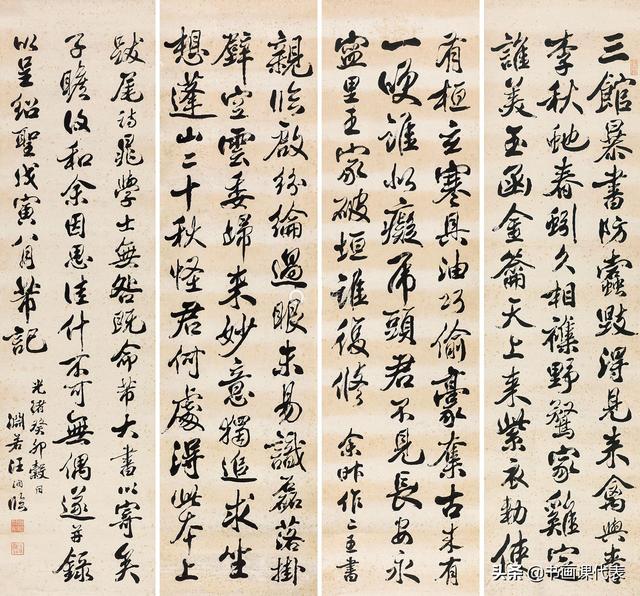 三館暴書防蠹毀得見来禽與青
李秋虵春蚓久相雜野鶩家雞定
誰美玉函金籥天上来紫衣勅使
有桓玄寒具油巧偷豪奪古来有
一咲誰似癡虎頭君不見長安永
寧里王家破垣誰復修 余昨作二王書
親臨啟紛綸過眼未易識磊落掛
壁空雲委歸来妙意獨追求坐
想蓬山二十秋怪君何處得此本上
跋尾詩晁學士無咎既命芾大書以寄矣
子瞻復和余因思佳什不可無偶遂并錄
以呈紹聖戊寅八月芾記
光緒癸卯穀日
淵若汪洵臨
头条 @书画课代表